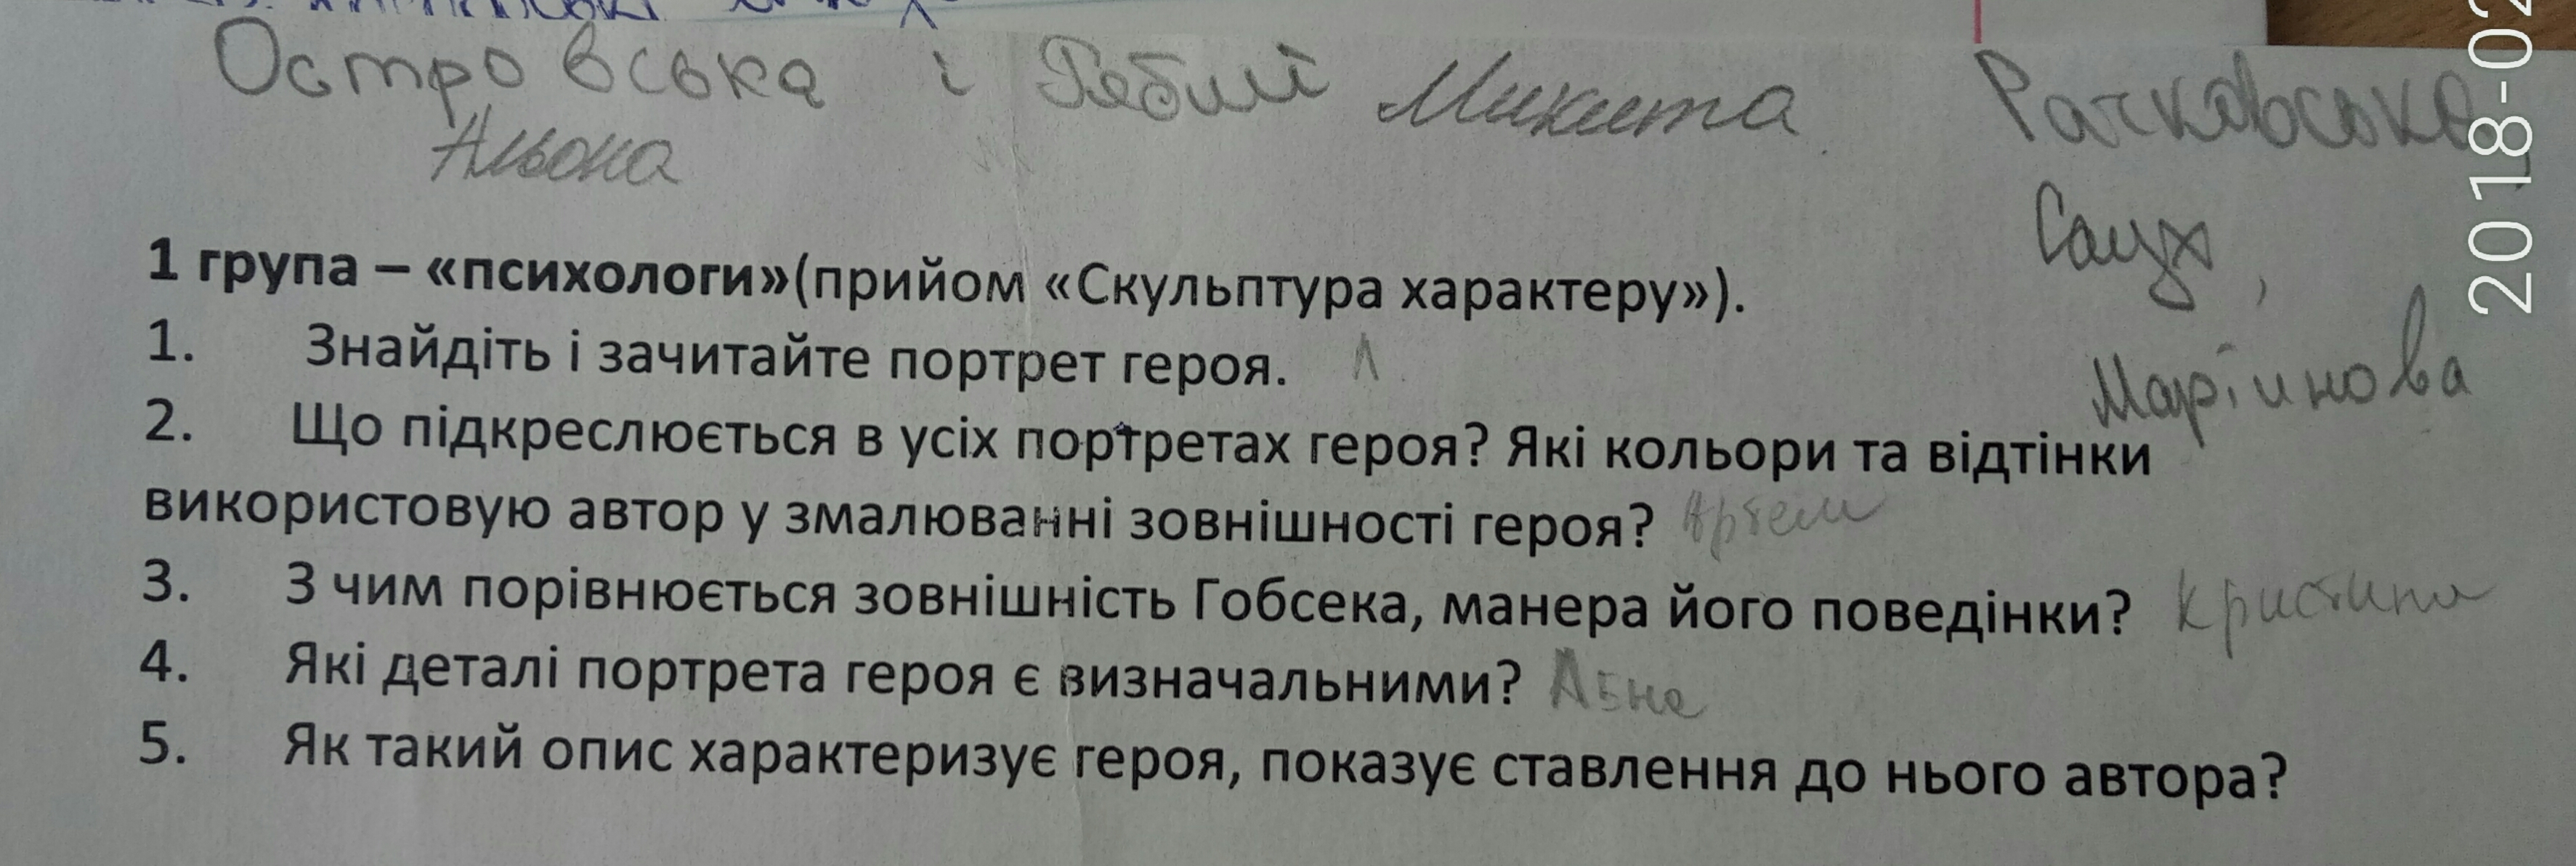 Островська і Рябий Микита Рачковська,
Альона
Саух,
Марійнова
1 група – «психологи»(прийом «Скульптура характеру»).
1. Знайдіть і зачитайте портрет героя. А
2. Що підкреслюється в усіх портретах героя? Які кольори та відтінки
використовую автор у змалюванні зовнішності героя? Артем
3. З чим порівнюється зовнішність Гобсека, манера його поведінки? Кристина
4. Які деталі портрета героя є визначальними?
5. Як такий опис характеризує героя, показує ставлення до нього автора?
2018-02